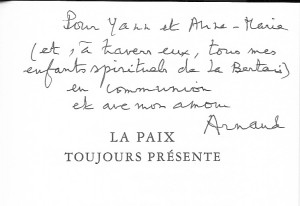 Pour Yann et Anne-Marie
(et, à travers eux, tous mes
enfants spirituels de la Bertais)
en communion
et avec mon amour
Arnaud
LA PAIX
TOUJOURS PRÉSENTE